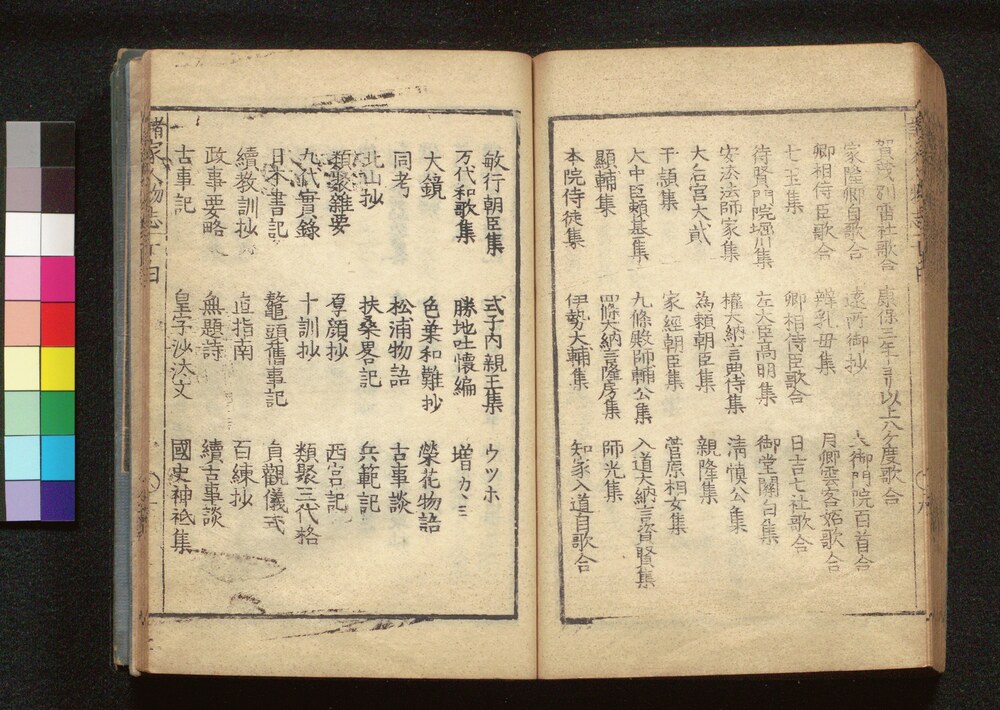 賀茂別雷社歌合 康保三年 以上八ケ度歌合
家隆卿自歌合 遠所御抄 御門院百首合
卿相侍臣歌合 辨乳母集 月卿雲客妬歌合
七玉集 卿相侍臣歌合 日吉七社歌合
待賢門院堀川集 左大臣高明集 御堂關白集
安法法師家集 權大納言典侍集 清慎公集
大宮大貳 為頼朝臣集 親隆集
千頴集 家經朝臣集 菅原相女集
大中臣頼基集 九條殿師輔公集 入道大納言資賢集
顯輔集 四條大納言隆房集 師光集
本院侍従集 伊勢大輔集 知家入道自歌合
敏行朝臣集 式子内親王集 ウツホ
万代和歌集 勝地吐懐編 増カヽミ
大鏡 色葉和難抄 榮花物語
同考 松浦物語 古事談
北山抄 扶桑畧記 兵範記
類聚雜要 厚顔抄 西宮記
九代實錄 十訓抄 類聚三代格
日本書記 鼇頭舊事記 貞觀儀式
續教訓抄 直指南 百練抄
政事要略 無題詩 續古事談
古事記 皇子沙汰文 國史神祇集
諸家人物志